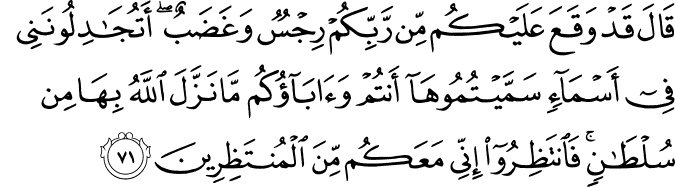 قَالَ قَدْ وَقَعَ عَلَيْكُم مِّن رَّبِّكُمْ رِجْسٌ وَغَضَبٌ ۖ أَتُجَٰدِلُونَنِى
فِىٓ أَسْمَآءٍ سَمَّيْتُمُوهَآ أَنتُمْ وَءَابَآؤُكُم مَّا نَزَّلَ ٱللَّهُ بِهَا مِن
سُلْطَٰنٍ ۚ فَٱنتَظِرُوٓا۟ إِنِّى مَعَكُم مِّنَ ٱلْمُنتَظِرِينَ ٧١